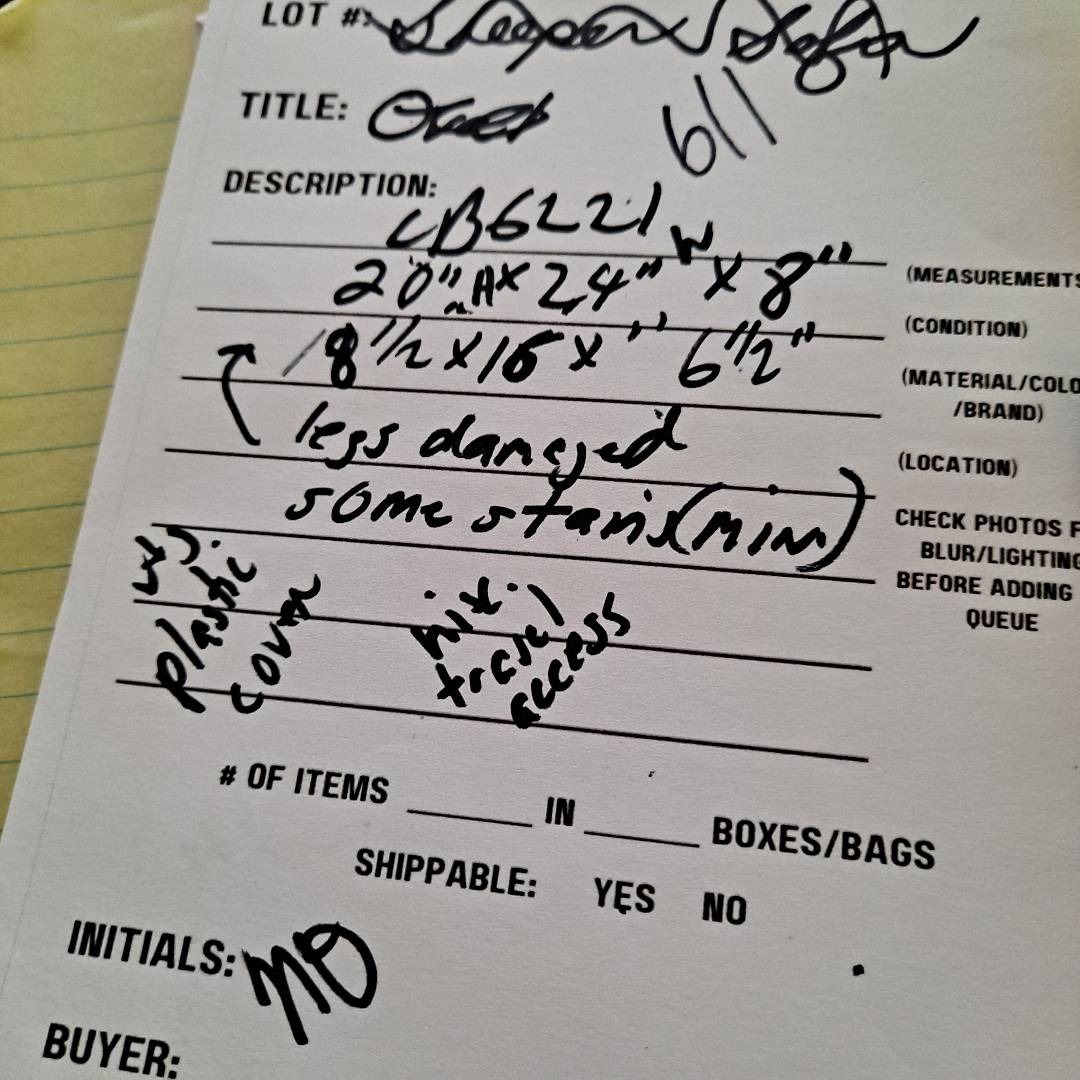 LOT #:
TITLE:
6/1
DESCRIPTION:
CB6221
20" H x 24" W x 8"
(MEASUREMENTS
18 1/2 x 16 x " 6 1/2"
(CONDITION)
(MATERIAL/COLO
/BRAND)
less damaged
(LOCATION)
some stains (MIN)
CHECK PHOTOS F
BLUR/LIGHTING
BEFORE ADDING
QUEUE
plastic
cover
travel
access
# OF ITEMS ______ IN ______ BOXES/BAGS
SHIPPABLE: YES NO
INITIALS: MO
BUYER: